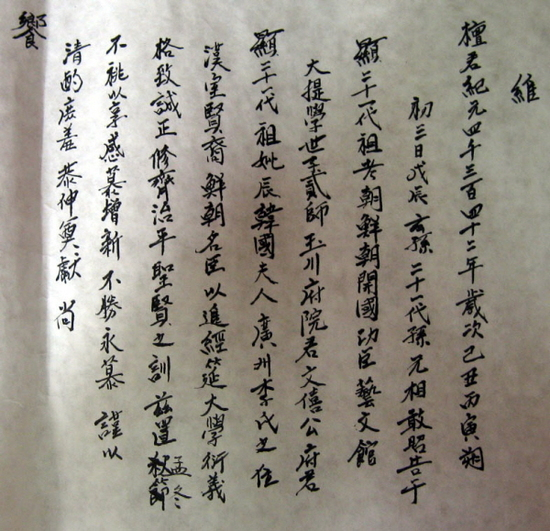 維
檀君紀元四千三百四十二年歲次己丑丙寅朔
初三日戊辰玄孫二十一代孫元相敢昭告于
顯二十一代祖考朝鮮朝開國功臣藝文館
大提學世子貳師玉川府院君文僖公府君
顯二十一代祖妣辰韓國夫人廣州李氏之位
漢室賢裔鮮朝名臣以進經筵大學衍義
格致誠正修齊治平聖賢之訓 茲置秋節孟冬
不祧以享感慕增新不勝永慕 謹以
清酌庶羞恭伸奠獻 尚
饗